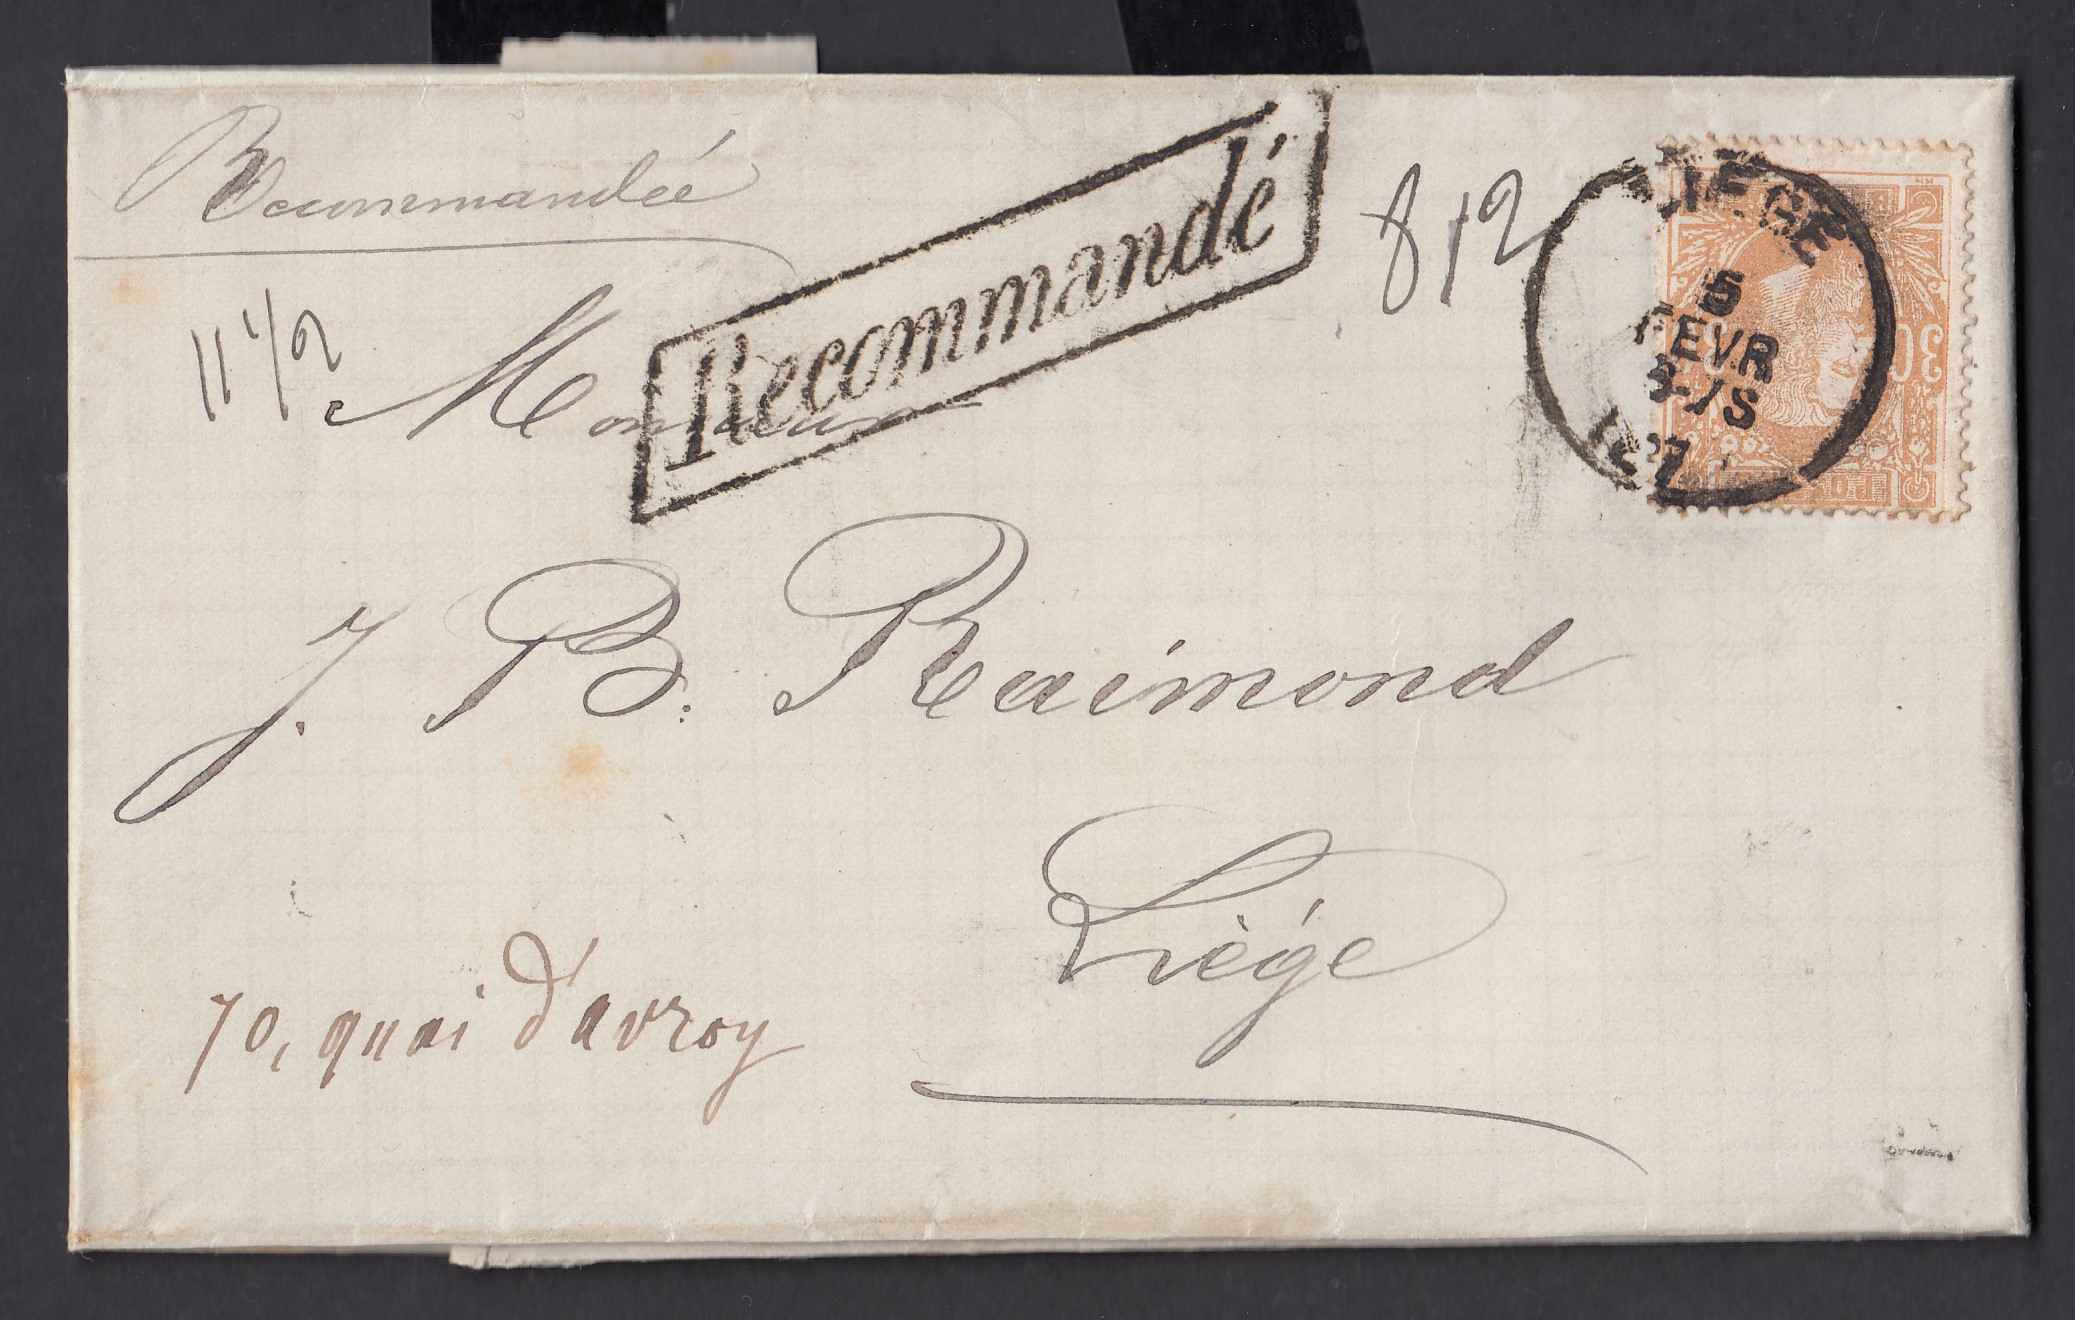 Recommandée
Recommandé
812
11 1/2
Monsieur
LIEGE
5
FEVR
3-/S
30
J. B. Raimond
Liège
70, quai d'avroy